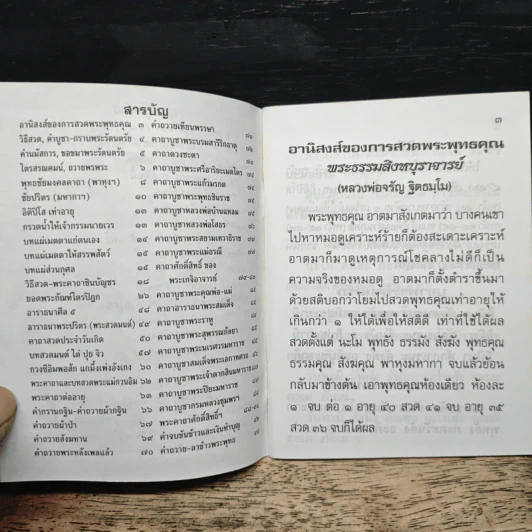 สารบัญ
อานิสงส์ของการสวดพระพุทธคุณ ๓
วิธีสวด, คำบูชา-กราบพระรัตนตรัย ๔
คำนมัสการ, ขอขมาพระรัตนตรัย ๕
ไตรสรณคมน์, ถวายพรพระ ๖
พุทธชัยมงคลคาถา (พาหุงฯ) ๘
ชัยปริตร (มหากาฯ) ๑๐
อิติปิโส เท่าอายุ ๑๐
กรวดน้ำให้เจ้ากรรมนายเวร ๑๓
บทแผ่เมตตาแก่ตนเอง ๑๔
บทแผ่เมตตาให้สรรพสัตว์ ๑๕
บทแผ่ส่วนกุศล ๑๕
วิธีสวด-พระคาถาชินบัญชร ๑๘
ยอดพระกัณฑ์ไตรปิฎก ๒๖
อาราธนาศีล ๕
อาราธนาพระปริตร (พระสวดมนต์)
คาถาสวดประจำวันเกิด
บทสวดมนต์ ไต่ ปุย จิว
พระคาถาต่ออายุ
คำกรานกฐิน-คำถวายผ้ากฐิน ๖๖
คำถวายผ้าป่า ๖๗
คำถวายสังฆทาน ๖๙
คำถวายพระพุทธ
คำถวายเทียนพรรษา
คาถาบูชาพระบรมสารีริกธาตุ
คาถาดวงชะตา
คาถาบูชาพระศรีอาริยะเมตไตร
คาถาบูชาพระแก้วมรกต
คาถาบูชาพระพุทธชินราช
คาถาบูชาหลวงพ่อบ้านแหลม
คาถาบูชาหลวงพ่อโสธร
คาถาบูชาพระสยามเทวาธิราช
คาถาบูชาพระแม่ธรณี
คาถาศักดิ์สิทธิ์ ของ
พระเกจิอาจารย์
คาถาบูชาพระคุณพ่อ-แม่
คาถาอาราธนาพระสมเด็จ
คาถาบูชาพระราหู
คาถาบูชาพระสุพรรณกัลยา
คาถาบูชาพระนเรศวรมหาราช
คาถาบูชาพระปิยะมหาราช
คาถาบูชากรมหลวงชุมพรฯ
พระคาถาศักดิ์สิทธิ์ฯ
คำจบขันข้าวและเงินทำบุญ
คำถวาย-ลาข้าวพระพุทธ
๓
อานิสงส์ของการสวดพระพุทธคุณ
พระธรรมสิงหบุราจารย์
(หลวงพ่อจรัญ ฐิตธมฺโม)
พระพุทธคุณ อาตมาสังเกตมาว่า บางคนเขา
ไปหาหมอดูเคราะห์ร้ายก็ต้องสะเดาะเคราะห์
อาตมาก็มาดูเหตุการณ์โชคลางไม่ดีก็เป็น
ความจริงของหมอดู อาตมาก็ตั้งตำราขึ้นมา
ด้วยสติบอกว่าโยมไปสวดพุทธคุณเท่าอายุให้
เกินกว่า ๑ ให้ได้เพื่อให้สติดี เท่าที่ใช้ได้ผล
สวดตั้งแต่ นะโม พุทธัง ธรรมัง สังฆัง พุทธคุณ
ธรรมคุณ สังฆคุณ พาหุงมหากา จบแล้วย้อน
กลับมาข้างต้น เอาพุทธคุณห้องเดียว ห้องละ
๑ จบ ต่อ ๑ อายุ ๔๐ สวด ๔๑ จบ อายุ ๓๕
สวด ๓๖ จบก็ได้ผล